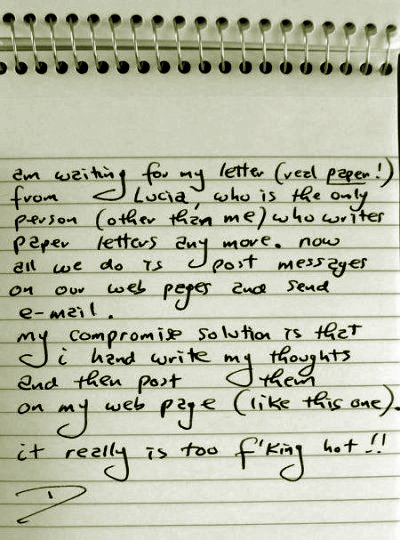 am waiting for my letter (real paper!)
from Lucia, who is the only
person (other than me) who writes
paper letters any more. now
all we do is post messages
on our web pages and send
e-mail.
my compromise solution is that
i hand write my thoughts
and then post them
on my web page (like this one).
it really is too f'king hot!!
D